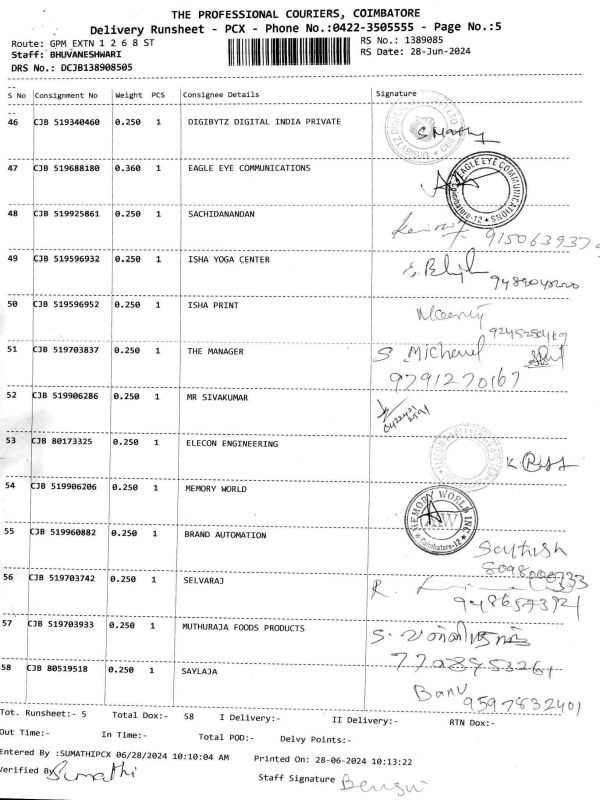 THE PROFESSIONAL COURIERS, COIMBATORE
Delivery Runsheet - PCX - Phone No.:0422-3505555 - Page No.:5
Route: GPM EXTN 1 2 6 8 ST
RS No.: 1389085
Staff: BHUVANESHWARI
RS Date: 28-Jun-2024
DRS No.: DCJB138908505
S No Consignment No Weight PCS Consignee Details Signature
46 CJB 519340460 0.250 1 DIGIBYTZ DIGITAL INDIA PRIVATE S Mathy
47 CJB 519688180 0.360 1 EAGLE EYE COMMUNICATIONS EAGLE EYE COMMUNICATIONS Coimbatore-12
48 CJB 519925861 0.250 1 SACHIDANANDAN
915063937
49 CJB 519596932 0.250 1 ISHA YOGA CENTER
50 CJB 519596952 0.250 1 ISHA PRINT
51 CJB 519703837 0.250 1 THE MANAGER S Micheal
9791270167
52 CJB 519906286 0.250 1 MR SIVAKUMAR
53 CJB 80173325 0.250 1 ELECON ENGINEERING
54 CJB 519906206 0.250 1 MEMORY WORLD MEMORY WORLD INC Coimbatore-12
55 CJB 519960882 0.250 1 BRAND AUTOMATION
56 CJB 519703742 0.250 1 SELVARAJ R.
57 CJB 519703933 0.250 1 MUTHURAJA FOODS PRODUCTS S.
58 CJB 80519518 0.250 1 SAYLAJA Banu
9597832401
Tot. Runsheet:- 5 Total Dox:- 58 I Delivery:- II Delivery:- RTN Dox:-
Out Time:- In Time:- Total POD:- Delvy Points:-
Entered By :SUMATHIPCX 06/28/2024 10:10:04 AM Printed On: 28-06-2024 10:13:22
Verified By Sumathi Staff Signature